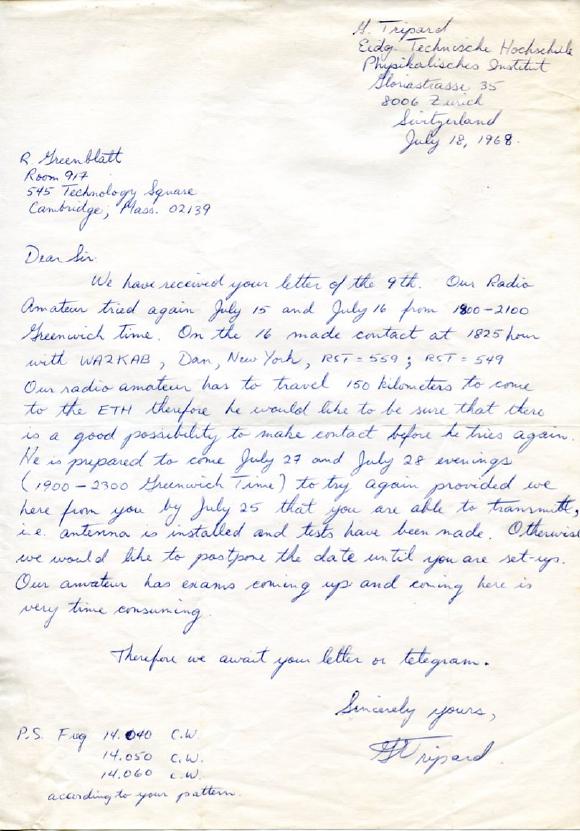 G. Tripard
Eidg. Technische Hochschule
Physikalisches Institut
Gloriastrasse 35
8006 Zurich
Switzerland
July 18, 1968.
R Greenblatt
Room 917
545 Technology Square
Cambridge, Mass. 02139
Dear Sir
We have received your letter of the 9th. Our Radio
Amateur tried again July 15 and July 16 from 1800-2100
Greenwich Time. On the 16 made contact at 1825 hour
with WA2KAB, Dan, New York, RST = 559; RST = 549
Our radio amateur has to travel 150 kilometers to come
to the ETH therefore he would like to be sure that there
is a good possibility to make contact before he tries again.
He is prepared to come July 27 and July 28 evenings
(1900-2300 Greenwich Time) to try again provided we
here from you by July 25 that you are able to transmitt,
i.e. antenna is installed and tests have been made. Otherwise
we would like to postpone the date until you are set-up.
Our amateur has exams coming up and coming here is
very time consuming.
Therefore we await your letter or telegram.
Sincerely yours,
G Tripard
P.S. Freq 14.040 C.W.
14.050 C.W.
14.060 C.W.
according to your pattern.